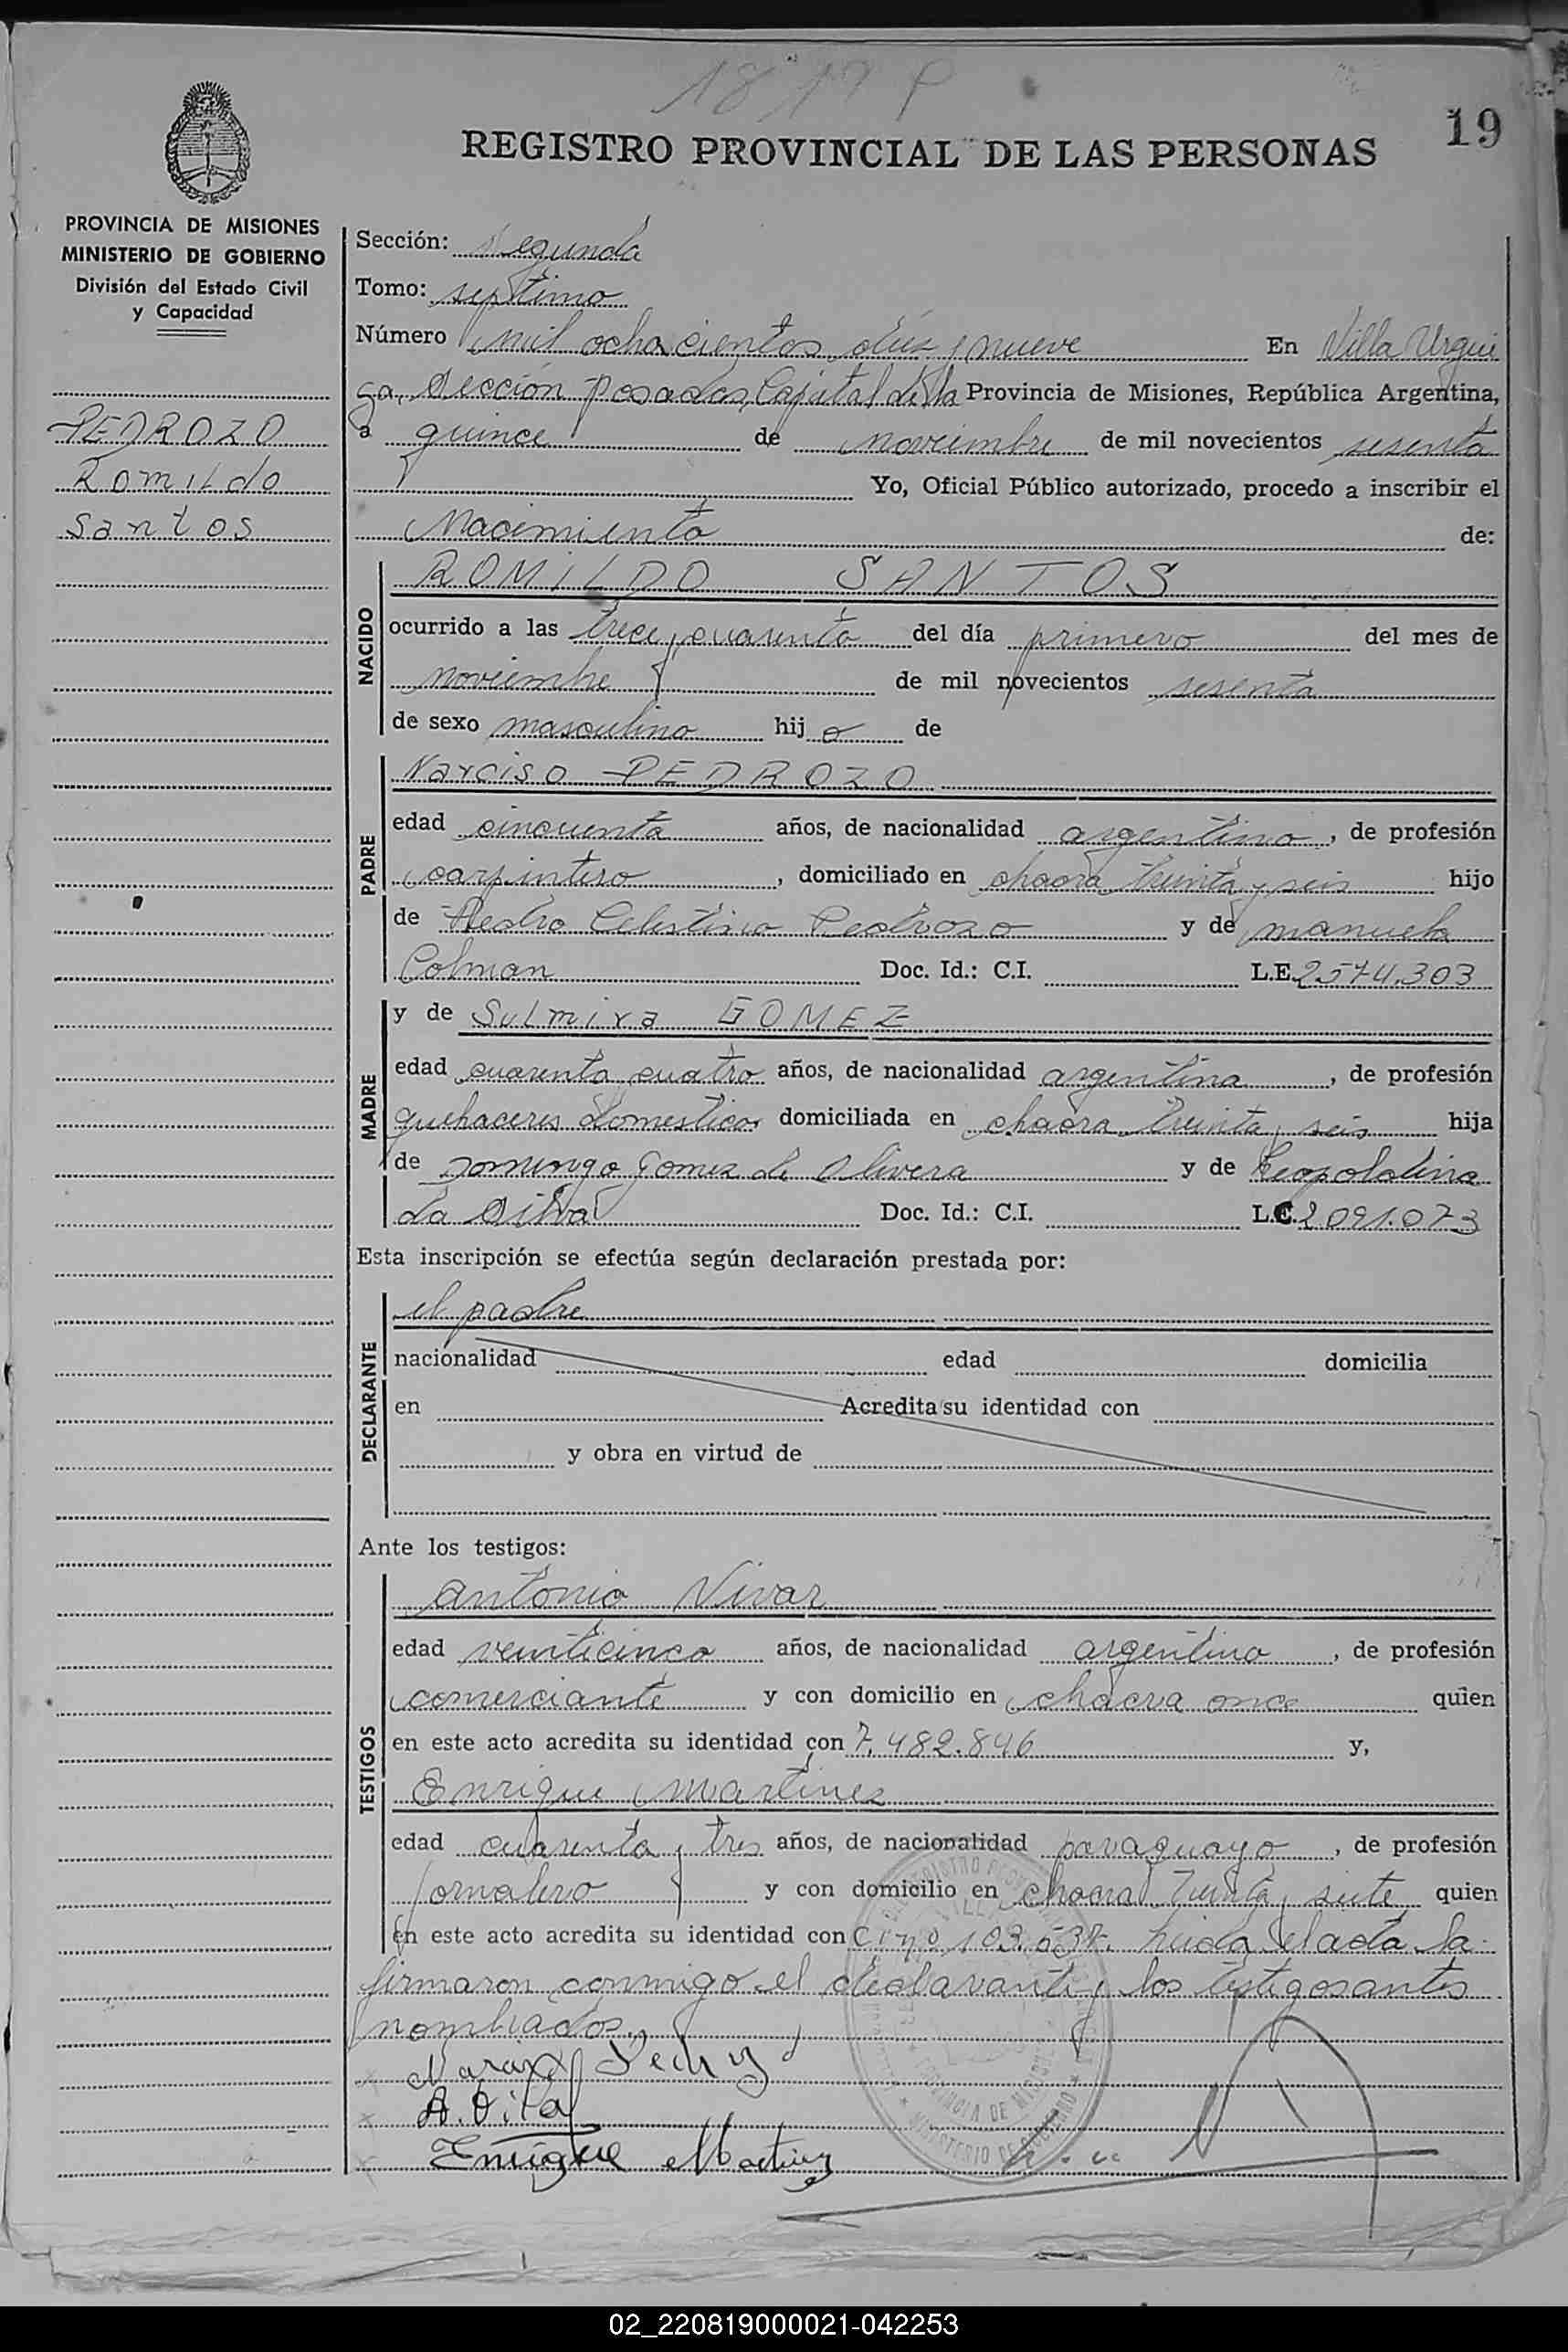 1819 P
19
REGISTRO PROVINCIAL DE LAS PERSONAS
PROVINCIA DE MISIONES
MINISTERIO DE GOBIERNO
División del Estado Civil
y Capacidad
PEDROZO
Romildo
Santos
Sección: Segunda
Tomo: septimo
Número mil ochocientos diez y nueve En Villa Urqui
za, Sección Posadas, Capital de la Provincia de Misiones, República Argentina,
a quince de noviembre de mil novecientos sesenta
Yo, Oficial Público autorizado, procedo a inscribir el
Nacimiento de:
NACIDO
ROMILDO SANTOS
ocurrido a las trece, cuarenta del día primero del mes de
noviembre de mil novecientos sesenta
de sexo masculino hijo de
PADRE
Narciso PEDROZO
edad cincuenta años, de nacionalidad argentino, de profesión
carpintero, domiciliado en chacra treinta y seis hijo
de Pedro Celestino Pedrozo y de manuela
Colman Doc. Id.: C.I. L.E. 2574.303
MADRE
y de Sulmira GOMEZ
edad cuarenta cuatro años, de nacionalidad argentina, de profesión
quehaceres domesticos domiciliada en chacra treinta y seis hija
de Domingo Gomez de Olivera y de Leopoldina
Da Silva Doc. Id.: C.I. L.C. 2091.073
Esta inscripción se efectúa según declaración prestada por:
DECLARANTE
el padre
nacionalidad edad domicilia
en Acredita su identidad con
y obra en virtud de
Ante los testigos:
TESTIGOS
Antonio Vivar
edad veinticinco años, de nacionalidad argentino, de profesión
comerciante y con domicilio en chacra once quien
en este acto acredita su identidad con 7.482.846 y,
Enrique Martinez
edad cuarenta y tres años, de nacionalidad paraguayo, de profesión
jornalero y con domicilio en chacra treinta y siete quien
en este acto acredita su identidad con C.I. nº 103.637. Leida el acta la
firmaron conmigo el declarante y los testigos antes
nombrados.
Enrique Martinez
02_220819000021-042253